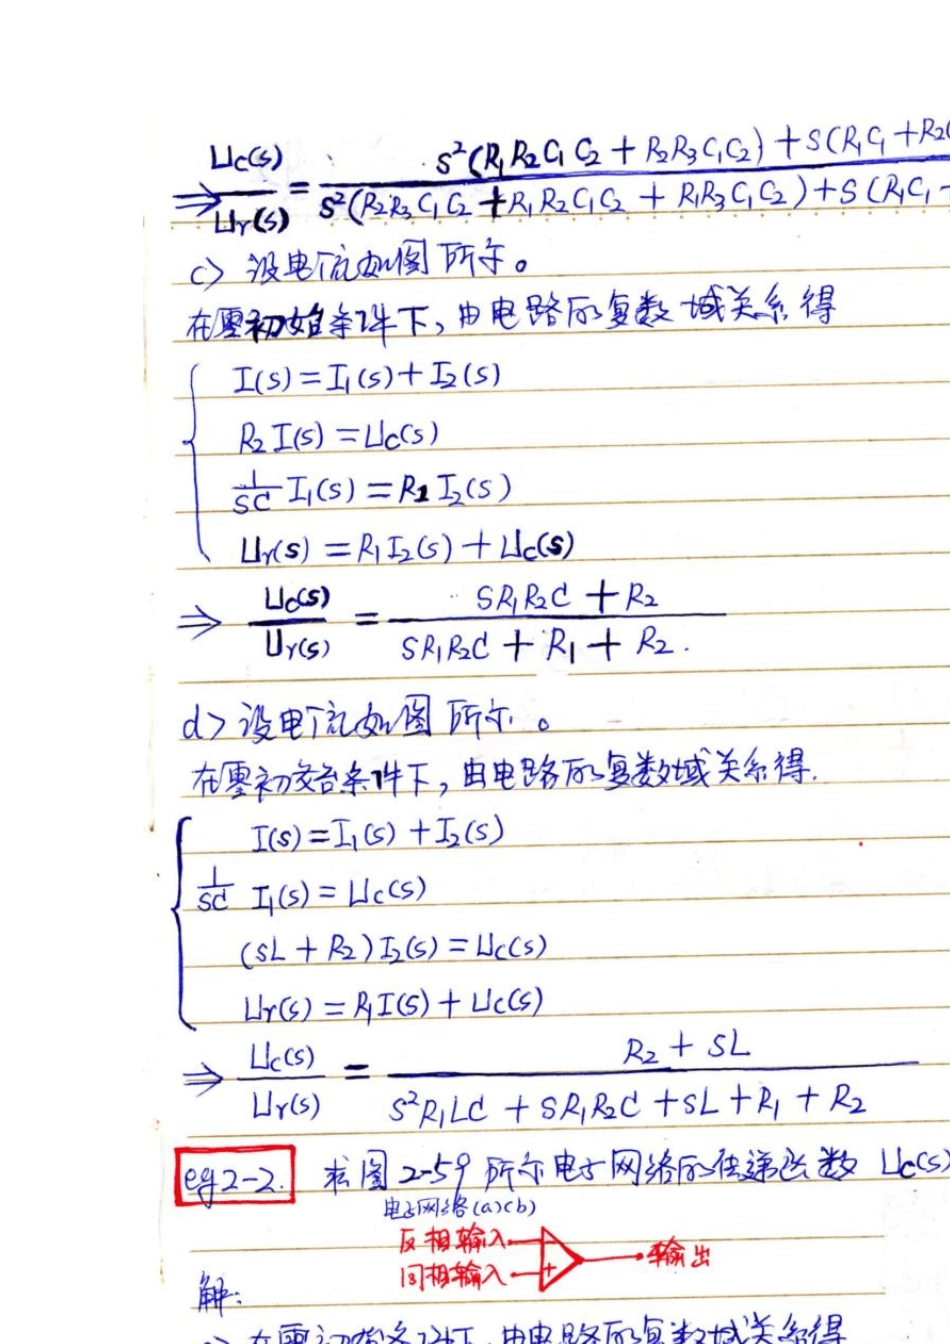 ⇒ Uc(s)/Ur(s) = s²(R₁R₂C₁C₂ + R₂R₃C₁C₂) + S(R₁C₁ + R₂ / s²(R₂R₃C₁C₂ + R₁R₂C₁C₂ + R₁R₃C₁C₂) + S(R₁C₁ +
c> 设电流如图所示。
在零初始条件下，由电路的复数域关系得
I(s) = I₁(s) + I₂(s)
R₂I(s) = Uc(s)
1/SC I₁(s) = R₁I₂(s)
Ur(s) = R₁I₂(s) + Uc(s)
⇒ Uc(s)/Ur(s) = SR₁R₂C + R₂ / SR₁R₂C + R₁ + R₂.
d> 设电流如图所示。
在零初始条件下，由电路的复数域关系得.
I(s) = I₁(s) + I₂(s)
1/SC I₁(s) = Uc(s)
(sL + R₂)I₂(s) = Uc(s)
Ur(s) = R₁I(s) + Uc(s)
⇒ Uc(s)/Ur(s) = R₂ + SL / S²R₁LC + SR₁R₂C + SL + R₁ + R₂
eg2-2. 求图2-59所示电子网络的传递函数 Uc(s)
电子网络(a)(b)
反相输入 输出
同相输入 +
解:
在零初始条件下,由电路的复数域关系得